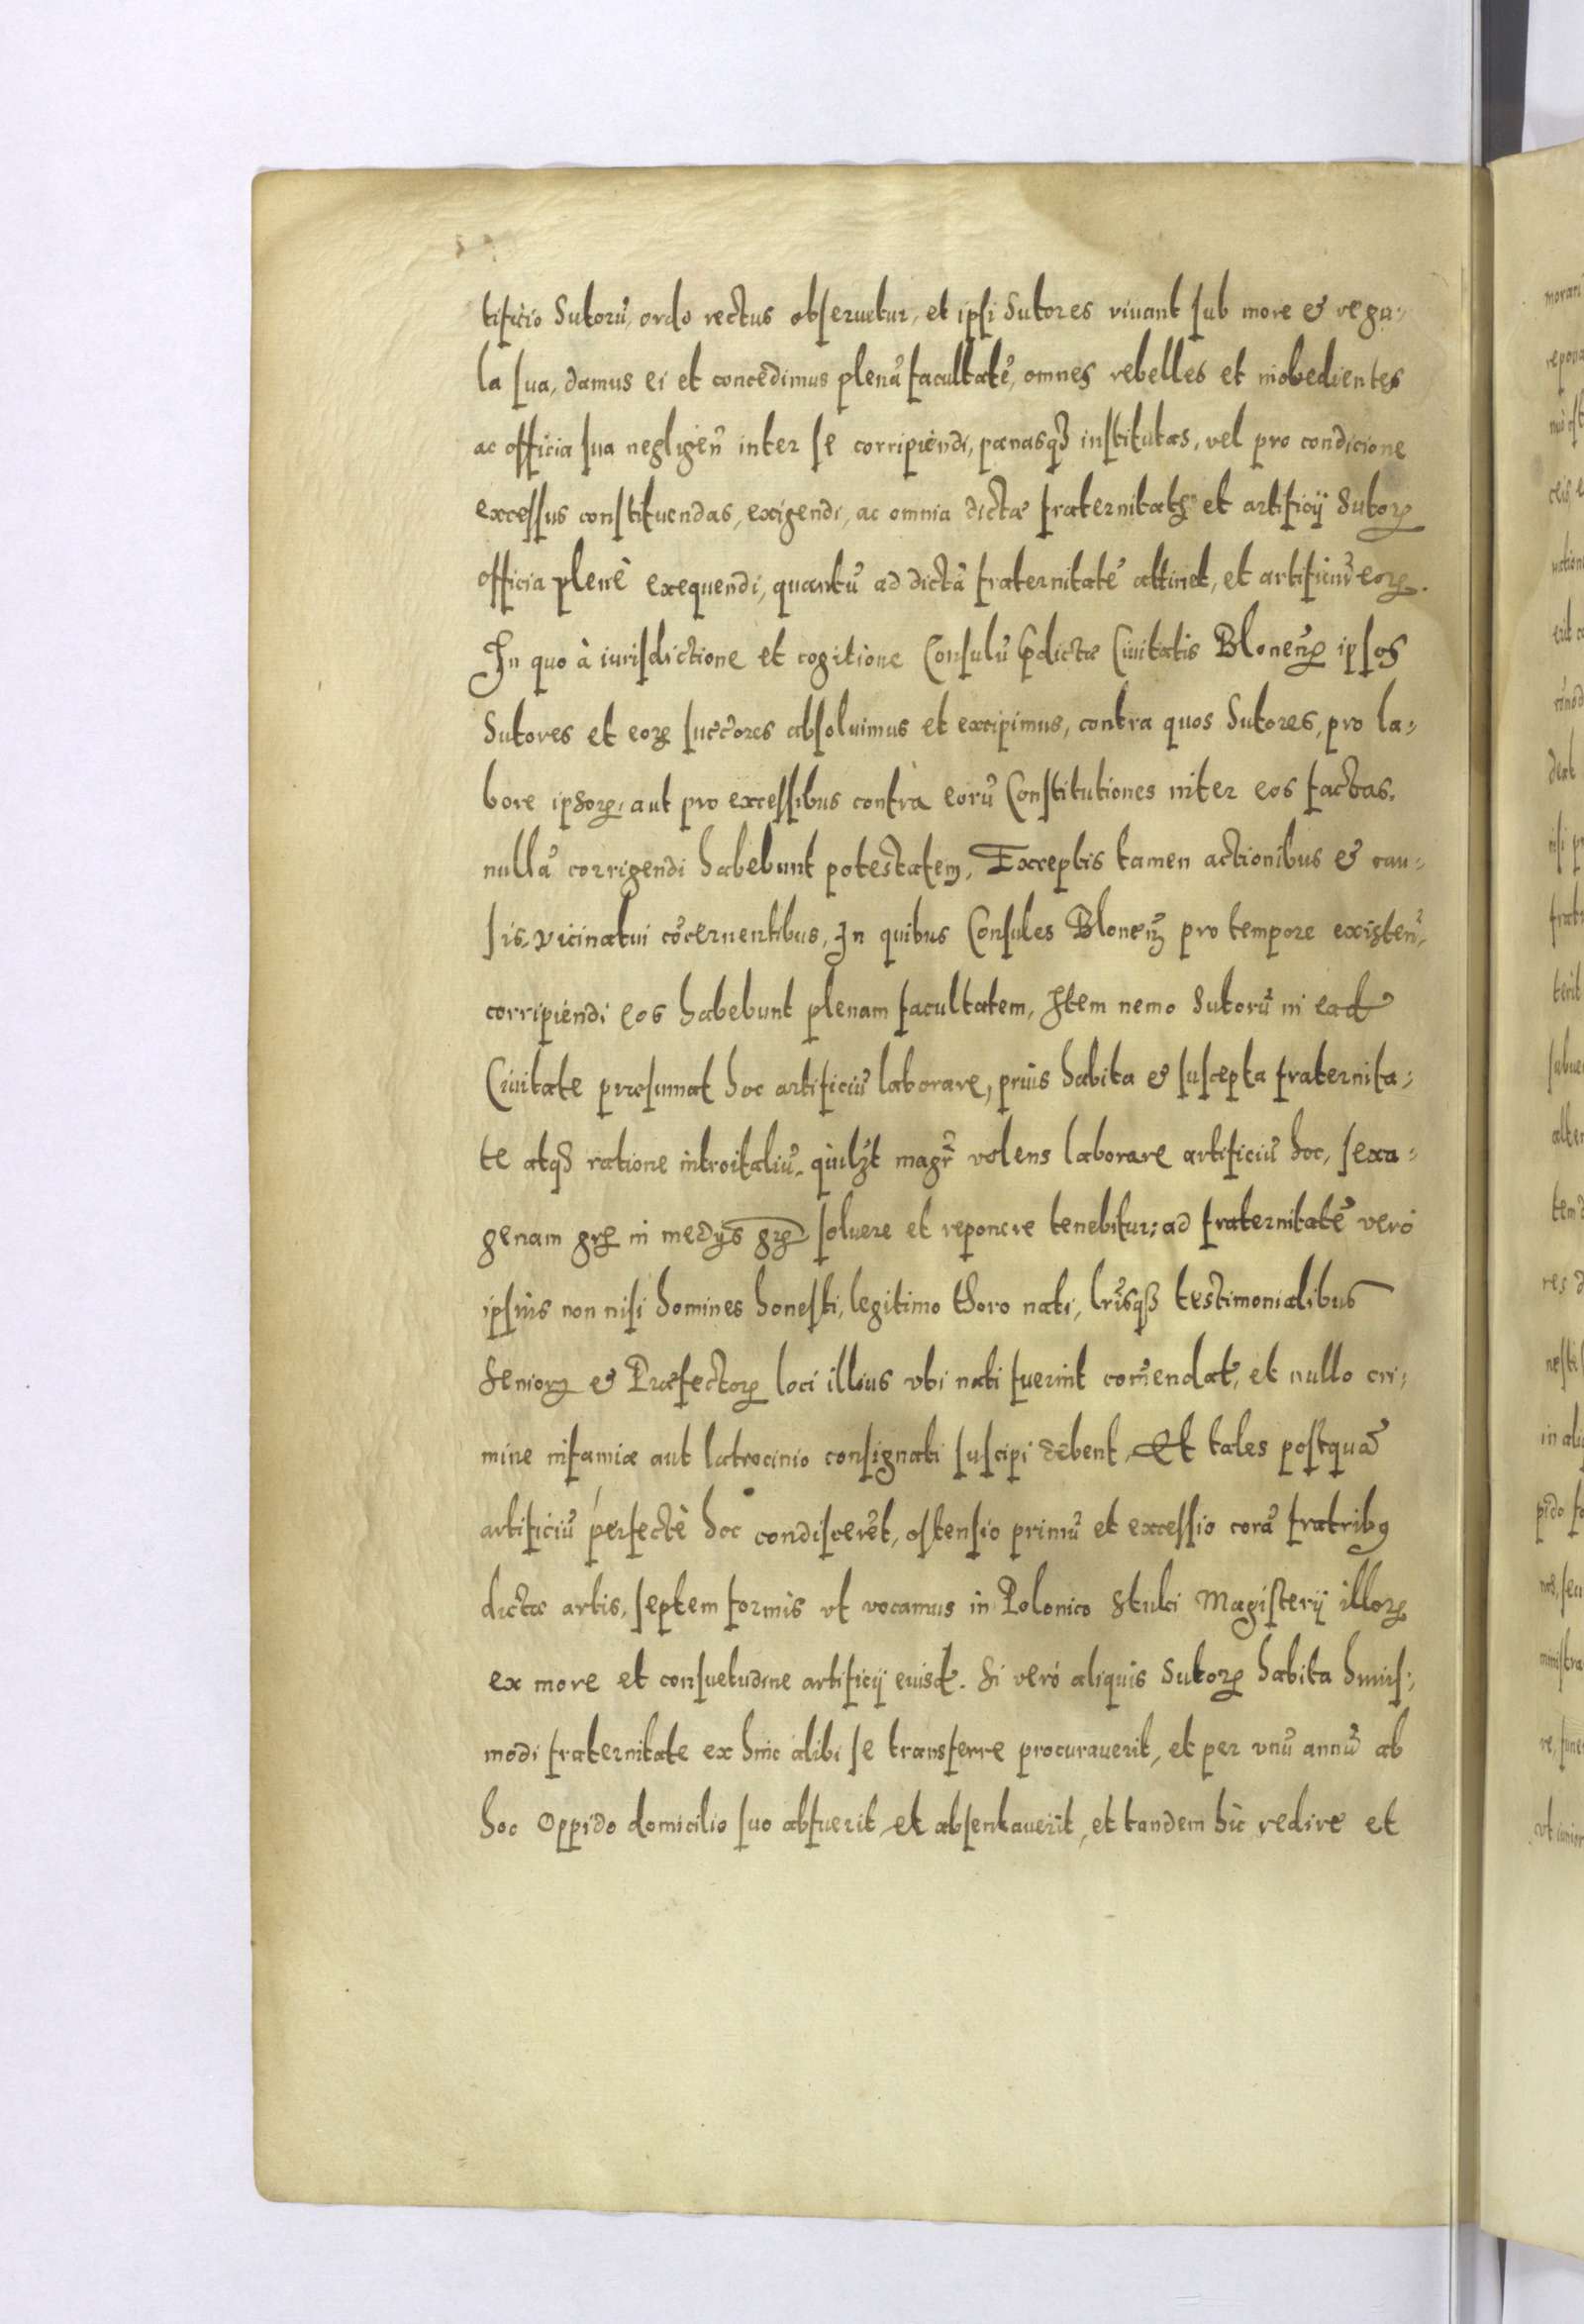 tificio Sutorũ, ordo rectus obseruetur, et ipsi Sutores viuant sub more & regu⸗
la sua, damus ei et concedimus plenã facultatẽ, omnes rebelles et inobedientes
ac officia sua negligeñ inter se corripiendi, pænasqꝫ institutas, vel pro condicione
excessus constituendas, exigendi, ac omnia dictæ fraternitatꝭ et artificij Sutoꝝ
officia plenè exequendi, quantũ ad dictã fraternitatẽ attinet, et artificiũ eoꝝ.
In quo à iurisdictione et cogitione Consulũ p̱dictæ Ciuitatis Bloneñꝝ ipsos
Sutores et eoꝝ succ̃ores absoluimus et excipimus, contra quos Sutores, pro la⸗
bore ipsoꝝ, aut pro excessibus contrà eorũ Constitutiones inter eos factas,
nullã corrigendi habebunt potestatem, Exceptis tamen actionibus & cau⸗
sis vicinatui cõcernentibus, In quibus Consules Bloneñ pro tempore existeñ,
corripiendi eos habebunt plenam facultatem, Item nemo Sutorũ in ead̃
Ciuitate præsumat hoc artificiũ laborare, priùs habita & suscepta fraternita⸗
te atqꝫ ratione introitaliũ, quilꝫt magr̃ volens laborare artificiũ hoc, sexa⸗
genam gꝝ in medijs gꝝ soluere et reponere tenebitur: ad fraternitatẽ verò
ipsius non nisi homines honesti, legitimo thoro nati, lr̃isqꝫ testimonialibus
Senioꝝ & Præfectoꝝ loci illius vbi nati fuerint com̃endat̃, et nullo cri⸗
mine infamiæ aut latrocinio consignati suscipi debent, Et tales postquã
artificiũ perfectè hoc condiscerẽt, ostensio primũ et excessio corã fratribꝯ
dictæ artis, septem formis vt vocamus in Polonico Stuki Magisterij illoꝝ
ex more et consuetudine artificij eiusd̃. Si verò aliquis Sutoꝝ habita huius⸗
modi fraternitate ex hinc alibi se transferre procurauerit, et per vnũ annũ ab
hoc Oppido domicilio suo abfuerit et absentauerit, et tandem hùc redire et